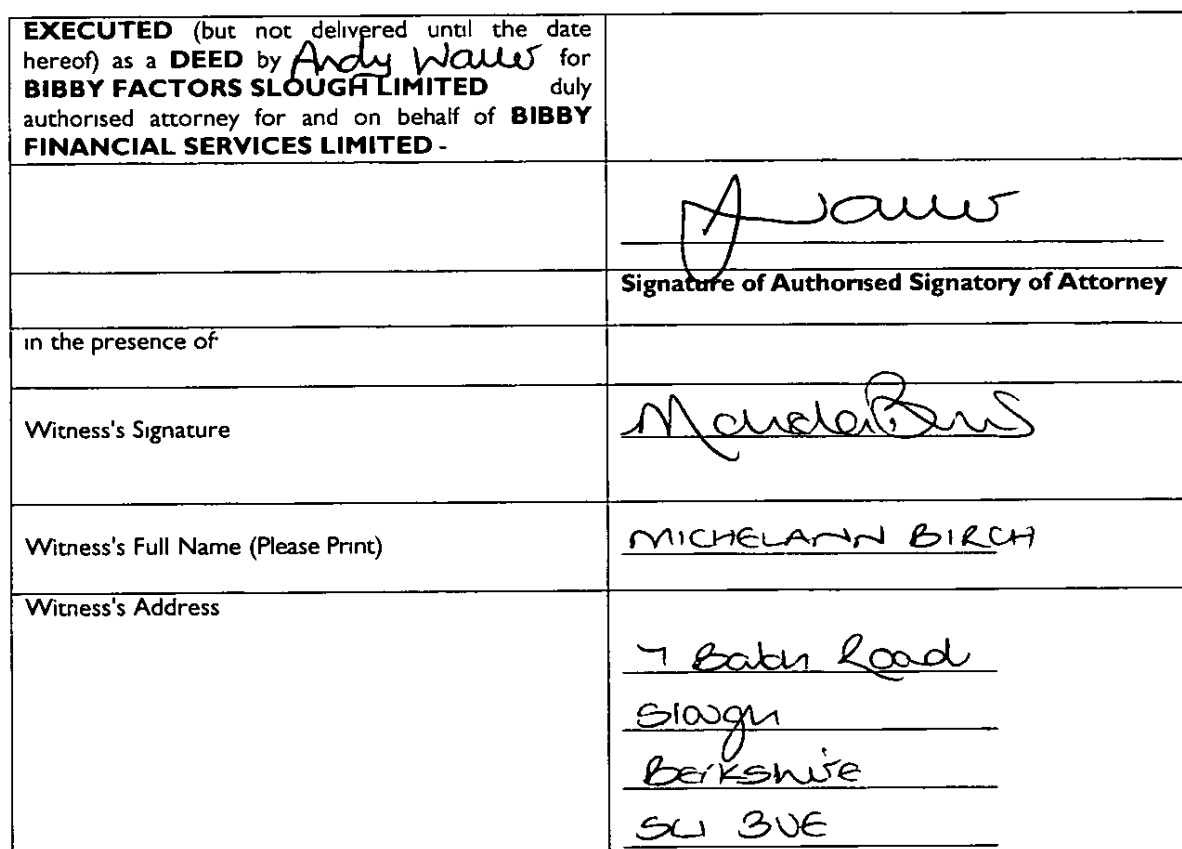 EXECUTED (but not delivered until the date
hereof) as a DEED by Andy for
BIBBY FACTORS SLOUGH LIMITED duly
authorised attorney for and on behalf of BIBBY
FINANCIAL SERVICES LIMITED -
Signature of Authorised Signatory of Attorney
in the presence of
Witness's Signature
Witness's Full Name (Please Print)
MICHELANN BIRCH
Witness's Address
7 Bath Road
Slough
Berkshire
SL1 3UE